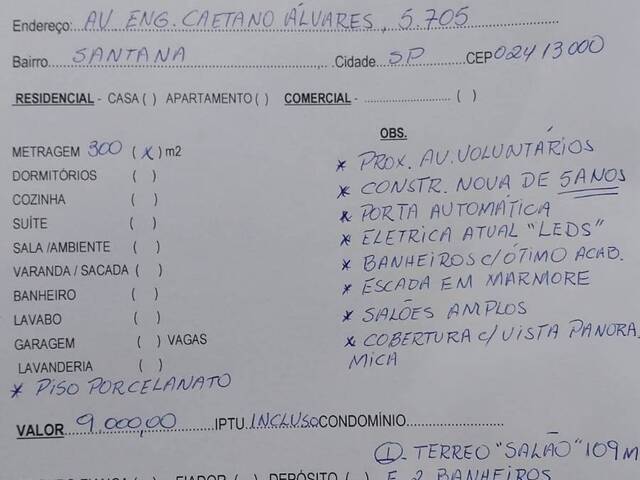 Endereço: AV. ENG. CAETANO ÁLVARES, 5.705
Bairro SANTANA Cidade SP CEP 02413000
RESIDENCIAL - CASA ( ) APARTAMENTO ( ) COMERCIAL - ........................ ( )
OBS.
METRAGEM 300 ( x ) m2
DORMITÓRIOS ( )
COZINHA ( )
SUÍTE ( )
SALA /AMBIENTE ( )
VARANDA / SACADA ( )
BANHEIRO ( )
LAVABO ( )
GARAGEM ( ) VAGAS
LAVANDERIA ( )
* PISO PORCELANATO
* PROX. AV. VOLUNTÁRIOS
* CONSTR. NOVA DE 5 ANOS
* PORTA AUTOMÁTICA
* ELETRICA ATUAL "LEDS"
* BANHEIROS C/ ÓTIMO ACAB.
* ESCADA EM MARMORE
* SALÕES AMPLOS
* COBERTURA C/ VISTA PANORA
MICA
VALOR 9.000,00 IPTU INCLUSO CONDOMÍNIO
① - TERREO "SALÃO" 109M
FIADOR ( ) DEPÓSITO ( ) E 2 BANHEIROS